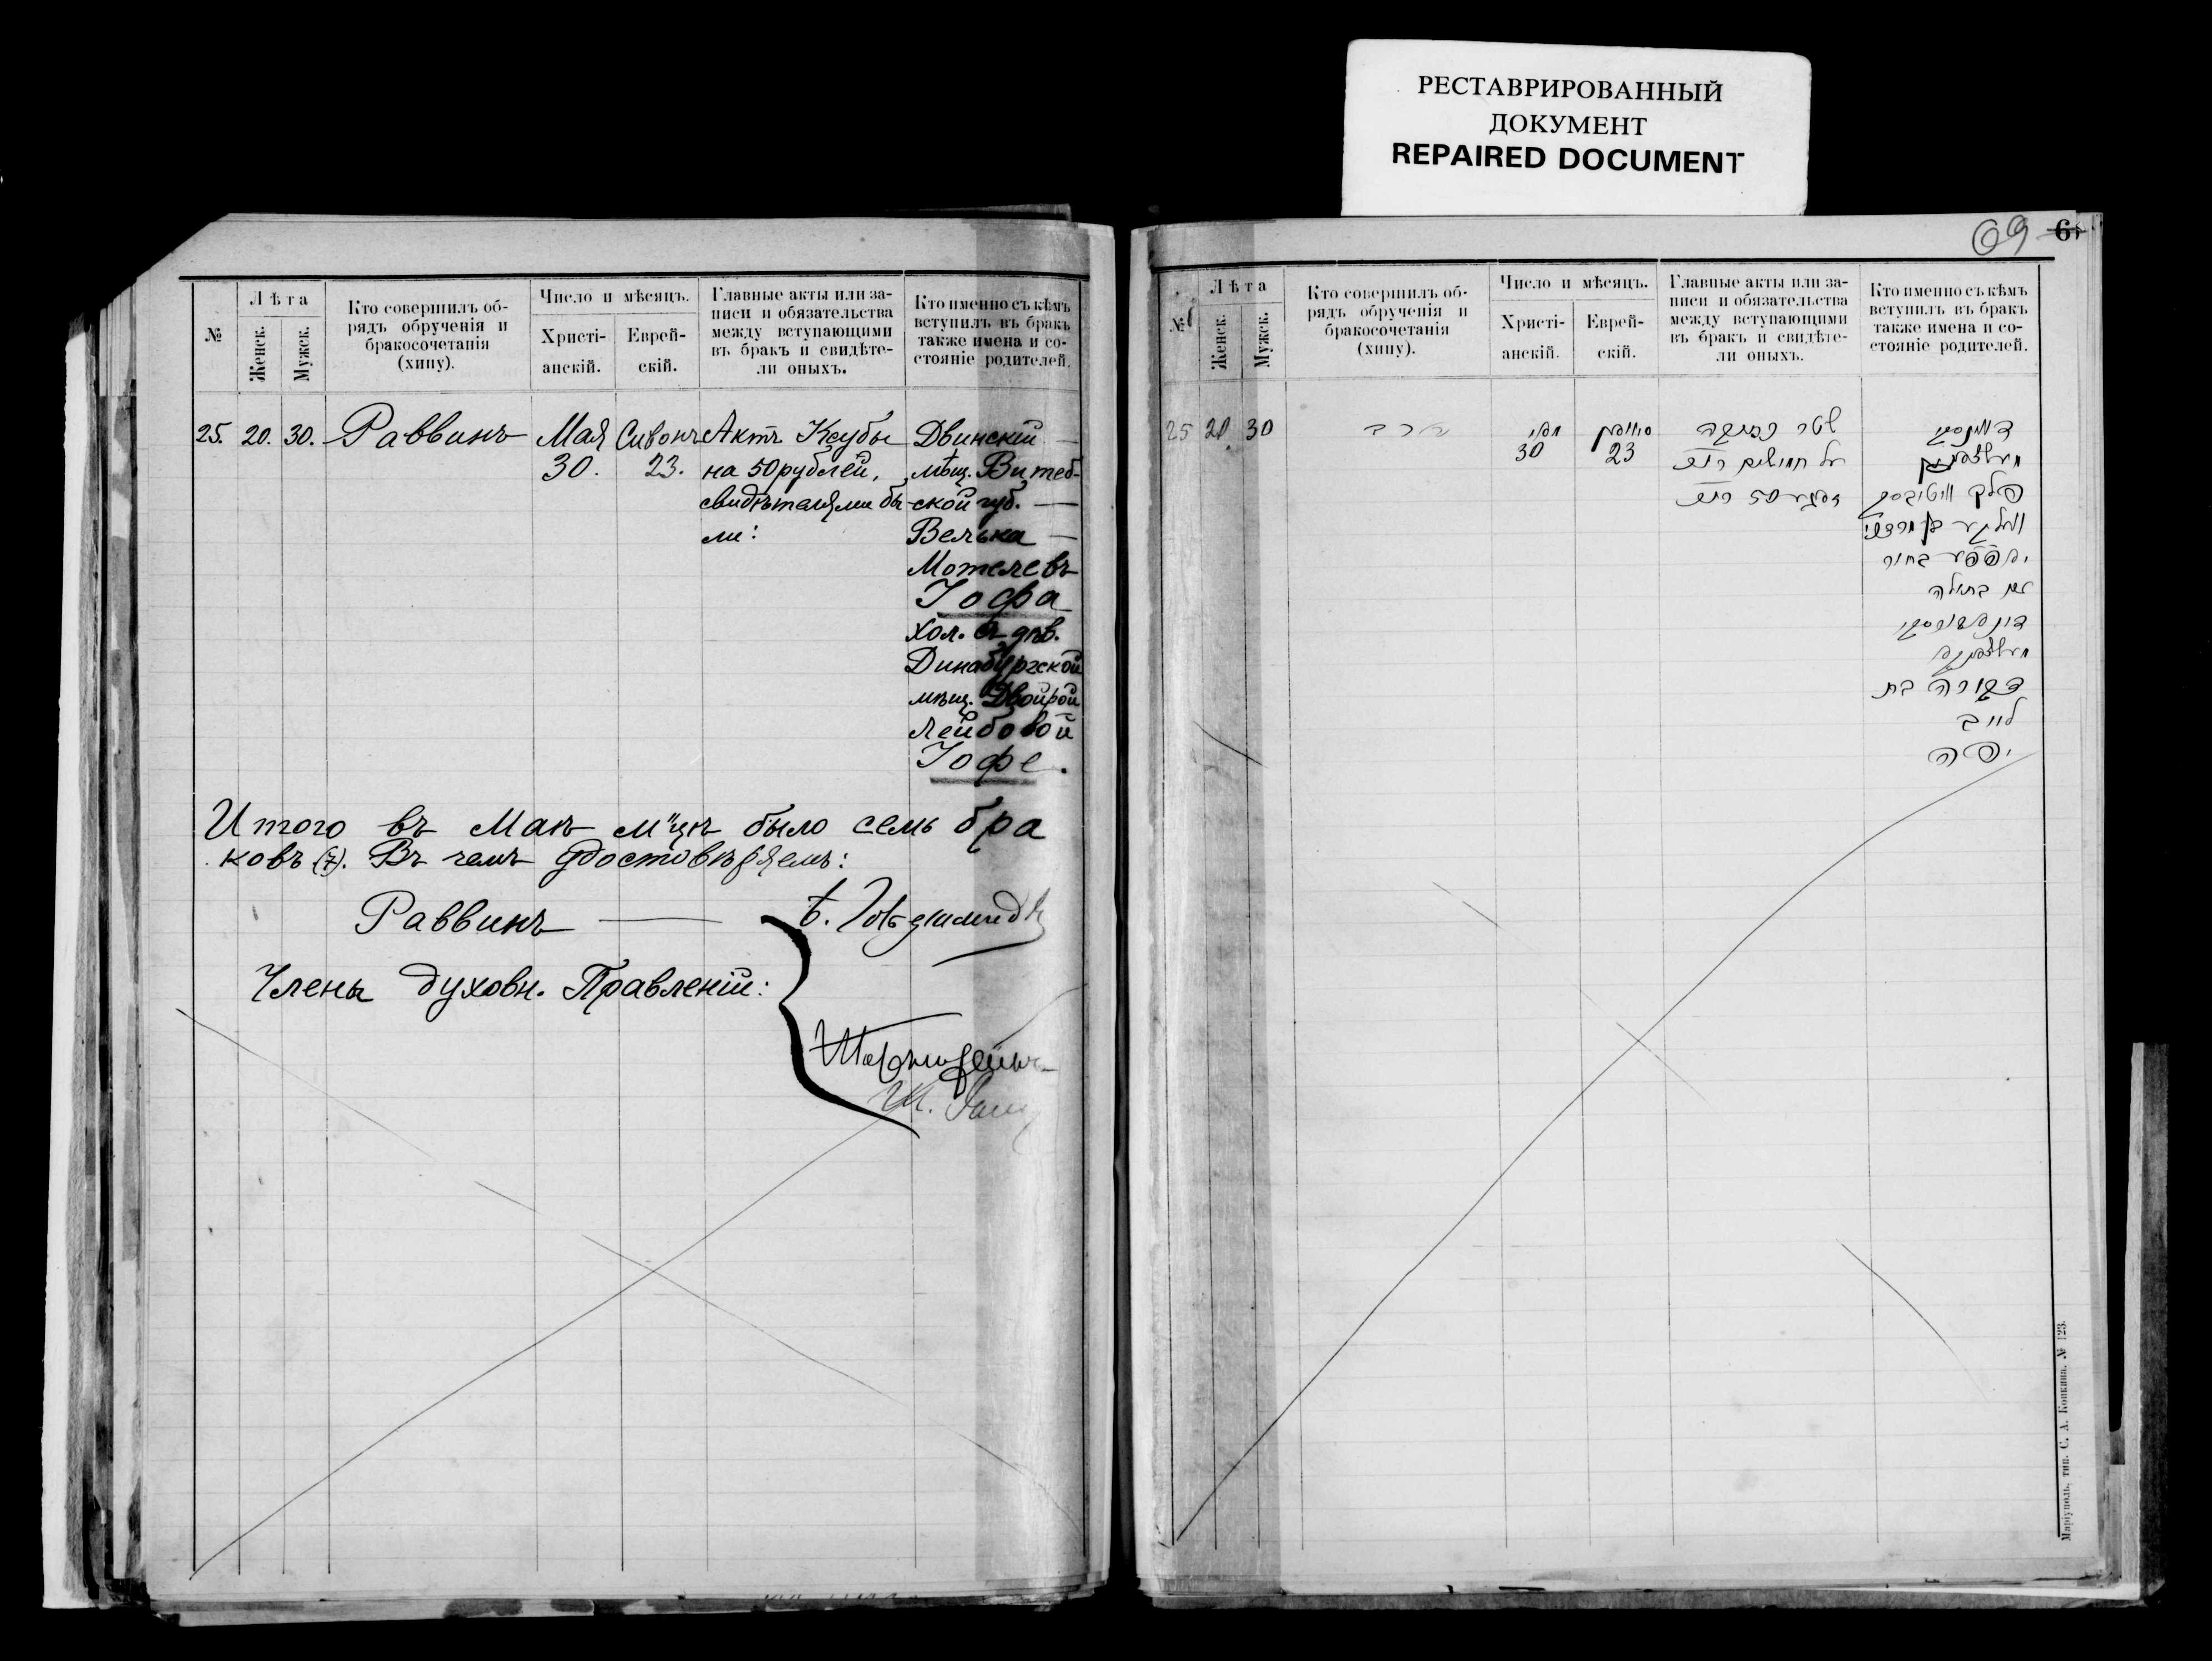 РЕСТАВРИРОВАННЫЙ
ДОКУМЕНТ
REPAIRED DOCUMENT
№
Лѣта
Женск.
Мужск.
Кто совершилъ об-
рядъ обрученія и
бракосочетанія
(хипу).
Число и мѣсяцъ.
Христі-
анскій.
Еврей-
скій.
Главные акты или за-
писи и обязательства
между вступающими
въ бракъ и свидѣте-
ли оныхъ.
Кто именно съ кѣмъ
вступилъ въ бракъ
также имена и со-
стояніе родителей.
25. 20. 30. Раввинъ
Мая
30.
Сивонъ
23.
Актъ Ксубы
на 50 рублей,
свидѣтелями бы
ли:
Двинскій
мѣщ. Витеб-
ской губ.
Велька
Мотелевъ
Іофа
хол. съ дѣв.
Динабургской
мѣщ. Двойрой
Лейбовой
Іофе.
Итого въ Маѣ м-цѣ было семь бра
ковъ (7). Въ чемъ удостовѣряемъ:
Раввинъ
Члены духовн. Правленія:
69
6
№
Лѣта
Женск.
Мужск.
Кто совершилъ об-
рядъ обрученія и
бракосочетанія
(хипу).
Число и мѣсяцъ.
Христі-
анскій.
Еврей-
скій.
Главные акты или за-
писи и обязательства
между вступающими
въ бракъ и свидѣте-
ли оныхъ.
Кто именно съ кѣмъ
вступилъ въ бракъ
также имена и со-
стояніе родителей.
25 20 30
הרב
מאי
30
סיון
23
שטר
על חמישים
50
דווינסקי
פלך
בחור
עם בתולה
דבורה בת
לייב
יפה
Маріуполь, тип. С. А. Копкина. № 123.